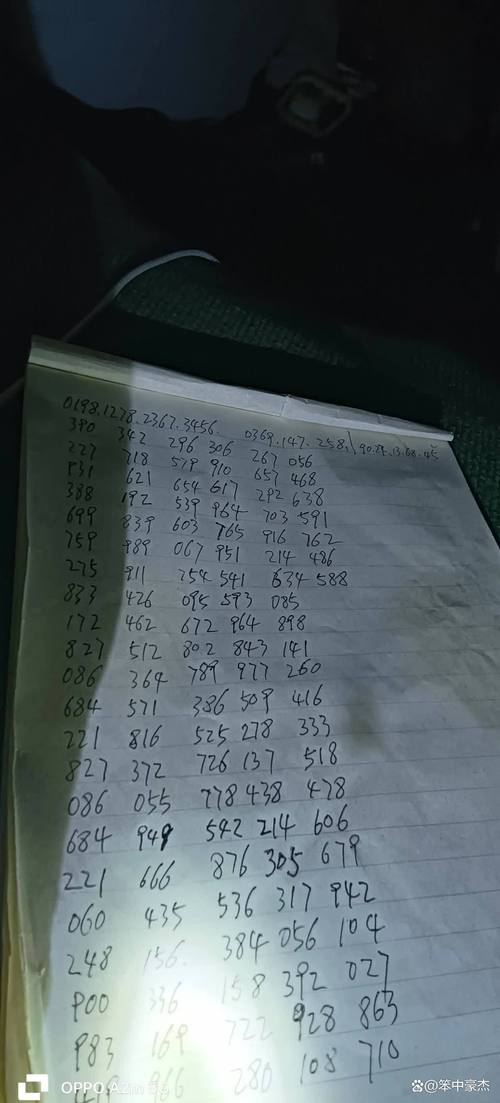 0198.1278.2367.3456. 0369.147.258.
380 342 296 306 267 056
227 718 579 910 657 468
831 621 654 617 292 638
388 192 539 964 703 591
699 839 603 765 916 762
759 989 067 951 214 486
275 911 754 541 634 588
833 426 095 593 085
172 462 672 964 898
827 512 802 843 141
086 364 789 977 260
684 571 386 509 416
221 816 525 278 333
827 372 726 137 518
086 055 778 438 478
684 949 542 214 606
221 666 876 305 679
060 435 536 317 942
248 156. 384 056 104
900 336 158 392 027
983 169 722 928 863
966 280 108 710
OPPO A2m
@笨中豪杰